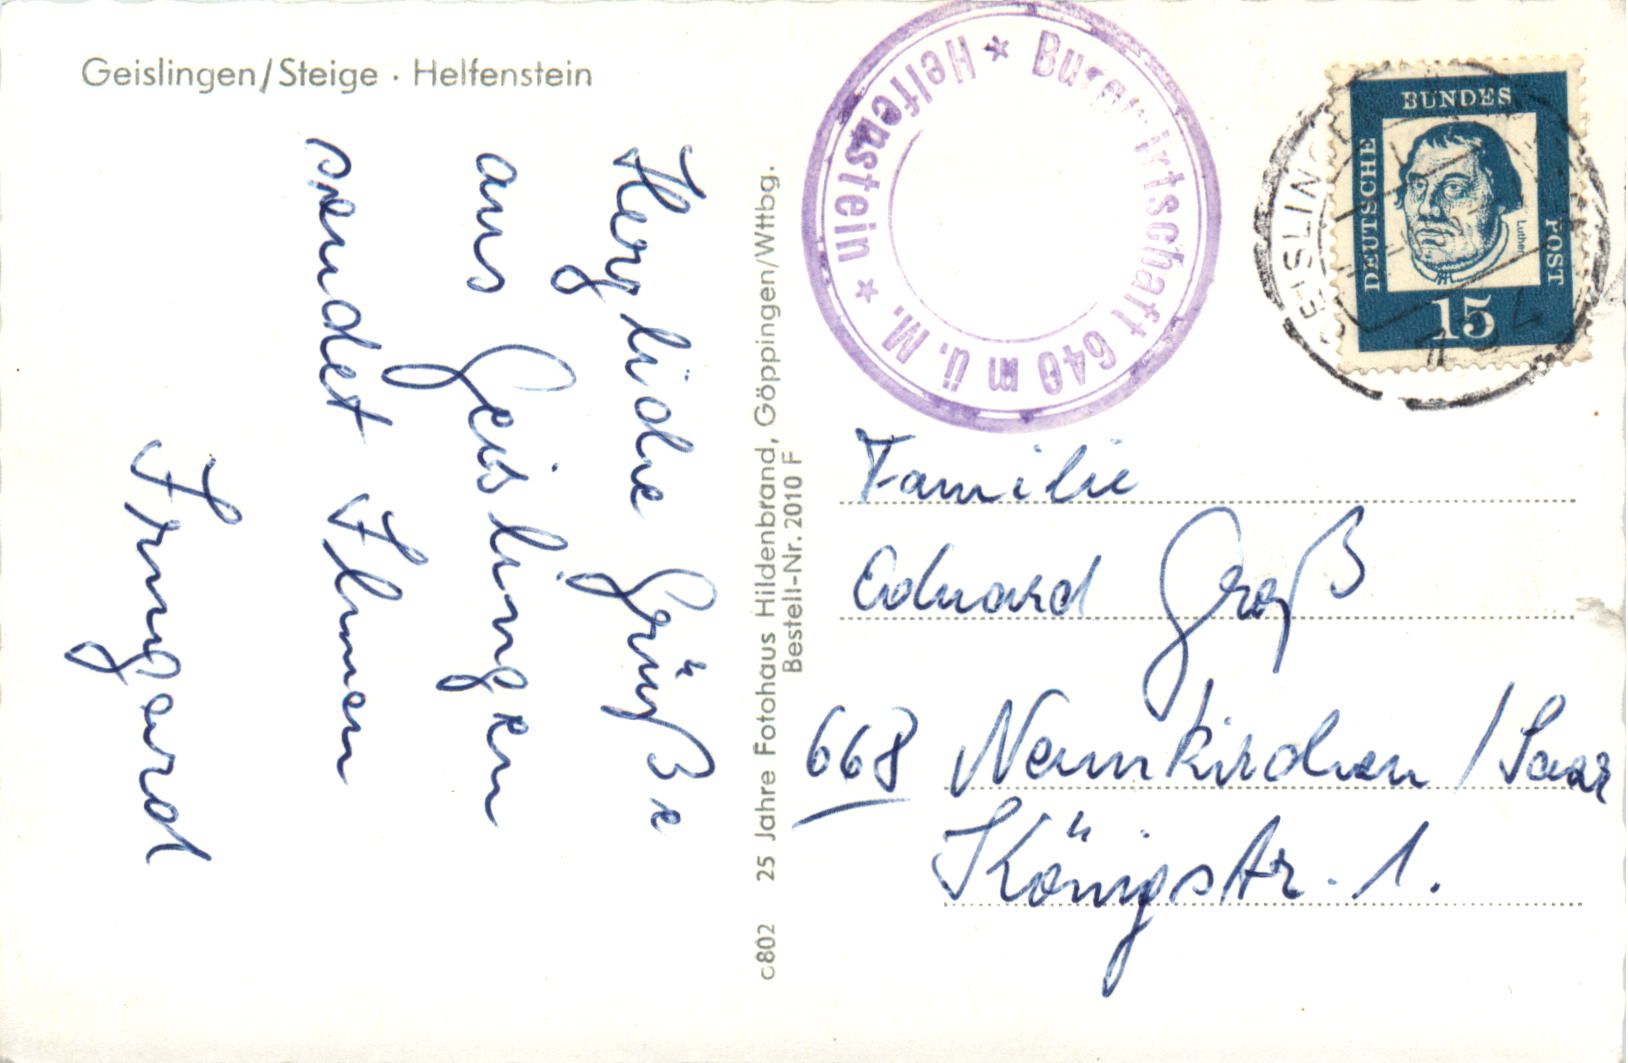 Geislingen/Steige · Helfenstein
Herzliche Grüße
aus Geislingen
sendet Ihnen
Irmgard
c802 25 Jahre Fotohaus Hildenbrand, Göppingen/Wttbg.
Bestell-Nr. 2010 F
* Burgwirtschaft 640 m ü. M. * Helfenstein
GEISLING
DEUTSCHE
BUNDES
POST
Luther
15
Familie
Eduard Groß
668 Neunkirchen / Saar
Königstr. 1.